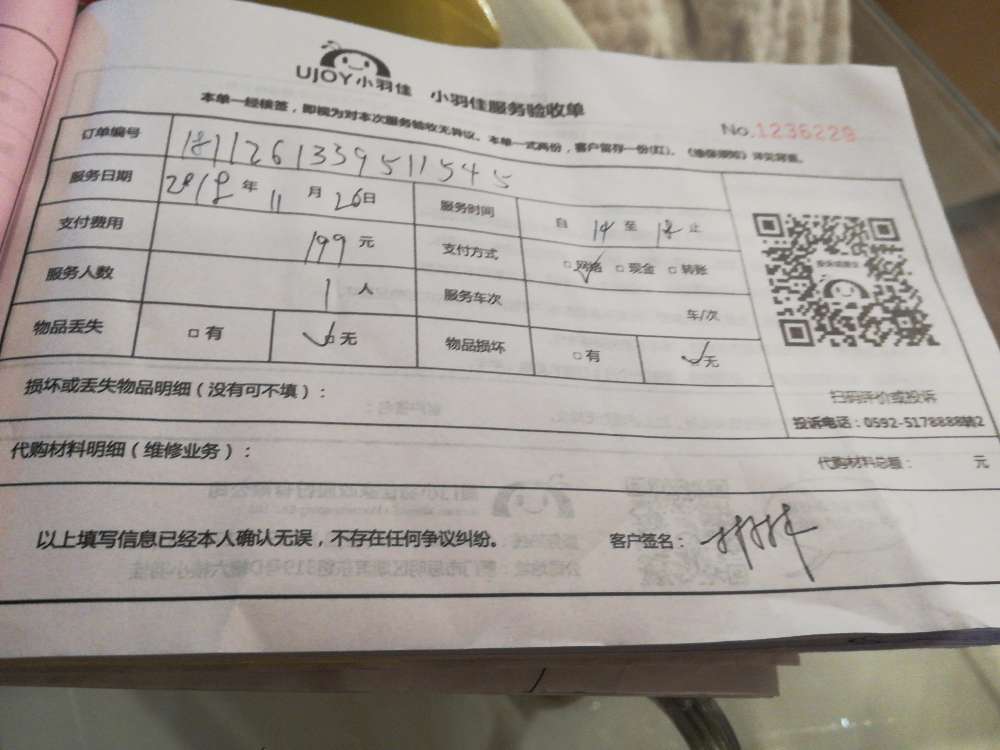 UJOY小羽佳 小羽佳服务验收单
No.1236229
本单一经核签，即视为对本次服务验收无异议。本单一式两份，客户留存一份(红)。《维保须知》详见背面。
订单编号 1811261339511545
服务日期 2018年11月26日 服务时间 自14至18止
支付费用 199元 支付方式 □网络 □现金 □转账
服务人数 1人 服务车次 车/次
物品丢失 □有 □无 物品损坏 □有 无
扫码评价或投诉
投诉电话：0592-5178888转2
损坏或丢失物品明细（没有可不填）：
代购材料明细（维修业务）： 代购材料总额： 元
以上填写信息已经本人确认无误，不存在任何争议纠纷。 客户签名：